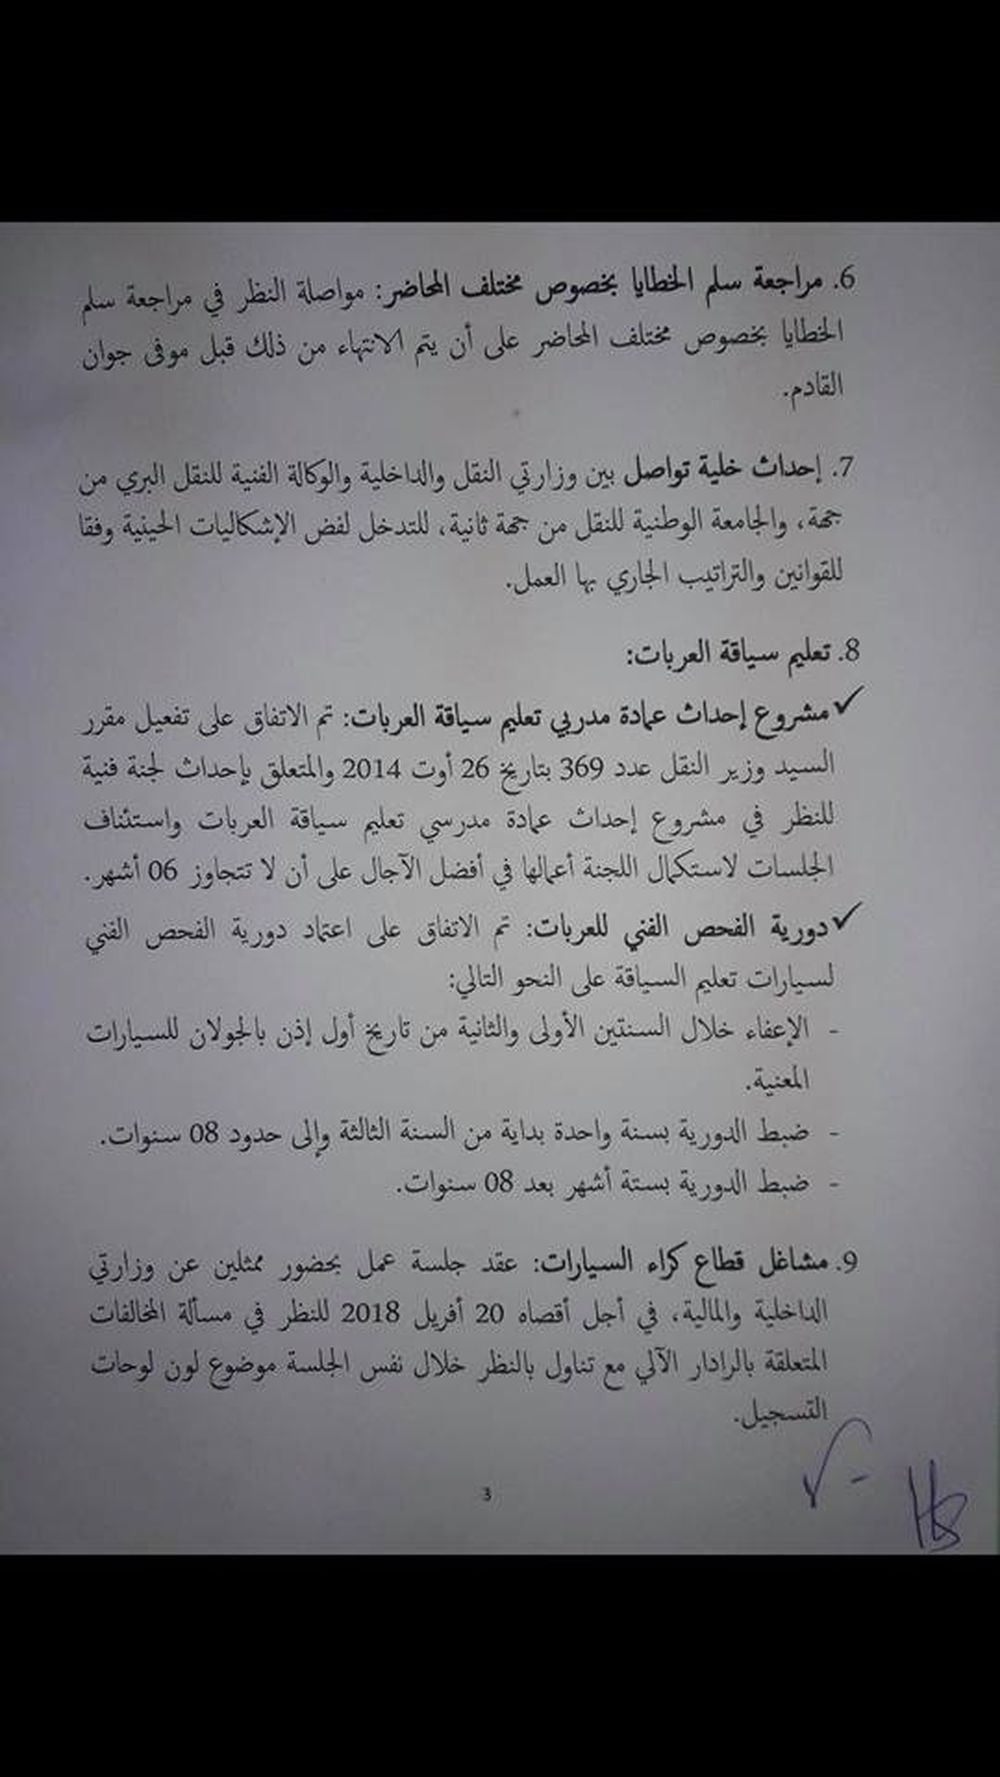 6. مراجعة سلم الخطايا بخصوص مختلف المحاضر: مواصلة النظر في مراجعة سلم
الخطايا بخصوص مختلف المحاضر على أن يتم الانتهاء من ذلك قبل موفى جوان
القادم.
7. إحداث خلية تواصل بين وزارتي النقل والداخلية والوكالة الفنية للنقل البري من
جهة، والجامعة الوطنية للنقل من جهة ثانية، للتدخل لفض الإشكاليات الحينية وفقا
للقوانين والتراتيب الجاري بها العمل.
8. تعليم سياقة العربات:
✓ مشروع إحداث عمادة مدربي تعليم سياقة العربات: تم الاتفاق على تفعيل مقرر
السيد وزير النقل عدد 369 بتاريخ 26 أوت 2014 والمتعلق بإحداث لجنة فنية
للنظر في مشروع إحداث عمادة مدرسي تعليم سياقة العربات واستئناف
الجلسات لاستكمال اللجنة أعمالها في أفضل الآجال على أن لا تتجاوز 06 أشهر.
✓ دورية الفحص الفني للعربات: تم الاتفاق على اعتماد دورية الفحص الفني
لسيارات تعليم السياقة على النحو التالي:
- الإعفاء خلال السنتين الأولى والثانية من تاريخ أول إذن بالجولان للسيارات
المعنية.
- ضبط الدورية بسنة واحدة بداية من السنة الثالثة وإلى حدود 08 سنوات.
- ضبط الدورية بستة أشهر بعد 08 سنوات.
9. مشاغل قطاع كراء السيارات: عقد جلسة عمل بحضور ممثلين عن وزارتي
الداخلية والمالية، في أجل أقصاه 20 أفريل 2018 للنظر في مسألة المخالفات
المتعلقة بالرادار الآلي مع تناول بالنظر خلال نفس الجلسة موضوع لون لوحات
التسجيل.
3